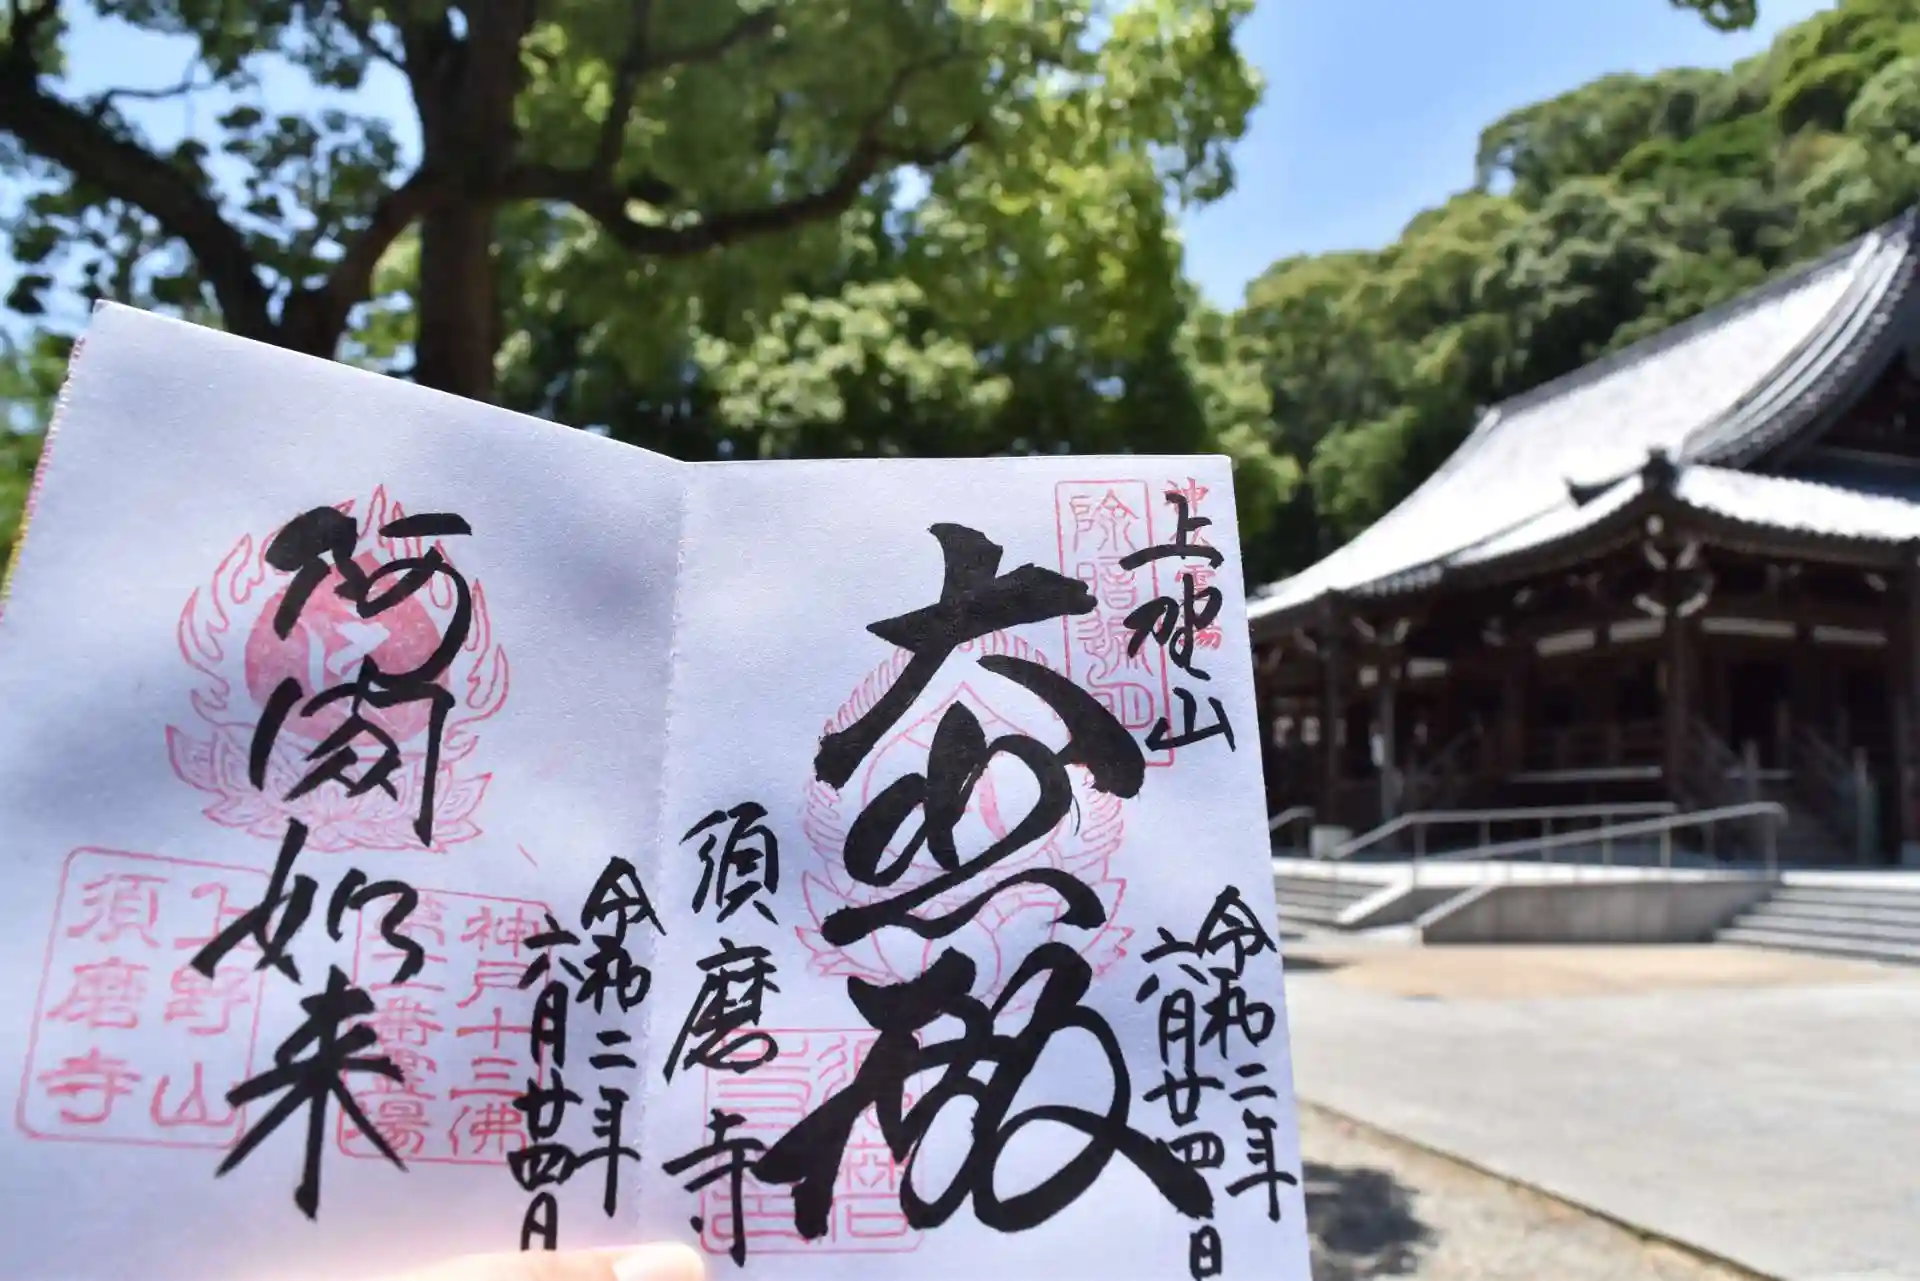 上野山
大悲殿
須磨寺
令和二年
六月廿四日
阿閦如来
令和二年
六月廿四日
神戸十三佛
第十一番霊場
上野山
須磨寺